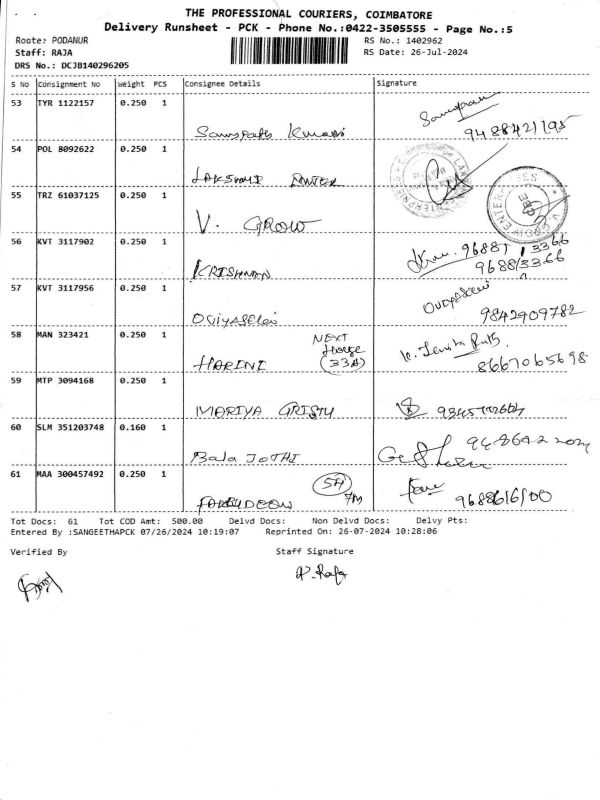 THE PROFESSIONAL COURIERS, COIMBATORE
Delivery Runsheet - PCK - Phone No.:0422-3505555 - Page No.:5
Route: PODANUR RS No.: 1402962
Staff: RAJA RS Date: 26-Jul-2024
DRS No.: DCJB140296205
S No Consignment No Weight PCS Consignee Details Signature
53 TYR 1122157 0.250 1
9488421195
54 POL 8092622 0.250 1
55 TRZ 61037125 0.250 1
V. GROW
56 KVT 3117902 0.250 1
KRISHNAN 9688133366
57 KVT 3117956 0.250 1
9842909782
58 MAN 323421 0.250 1 NEXT
House
HARINI (33A) 8667065698
59 MTP 3094168 0.250 1
MARIYA
60 SLM 351203748 0.160 1
Bala JOTHI
61 MAA 300457492 0.250 1
Tot Docs: 61 Tot COD Amt: 500.00 Delvd Docs: Non Delvd Docs: Delvy Pts:
Entered By :SANGEETHAPCK 07/26/2024 10:19:07 Reprinted On: 26-07-2024 10:28:06
Verified By Staff Signature